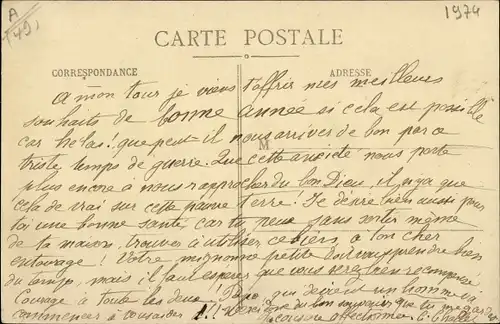 A
(49)
1974
CARTE POSTALE
CORRESPONDANCE
ADRESSE
M
A mon tour je viens t'offrir mes meilleurs
souhaits de bonne année si cela est possible
car hélas! que peut-il nous arriver de bon par ce
triste temps de guerre. Que cette anxiété nous porte
plus encore à nous rapprocher du bon Dieu, il n'y a que
cela de vrai sur cette pauvre terre. Je désire bien aussi pour
toi une bonne santé, car tu peux sans sortir même
de ta maison, trouver à utiliser ce bien à ton cher
entourage! Votre mignonne petite doit vous prendre bien
du temps, mais il faut espérer que vous serez bien récompensés
Courage à toute les deux! qui devient un homme va
commencer à
du bon
cousine affectionnée